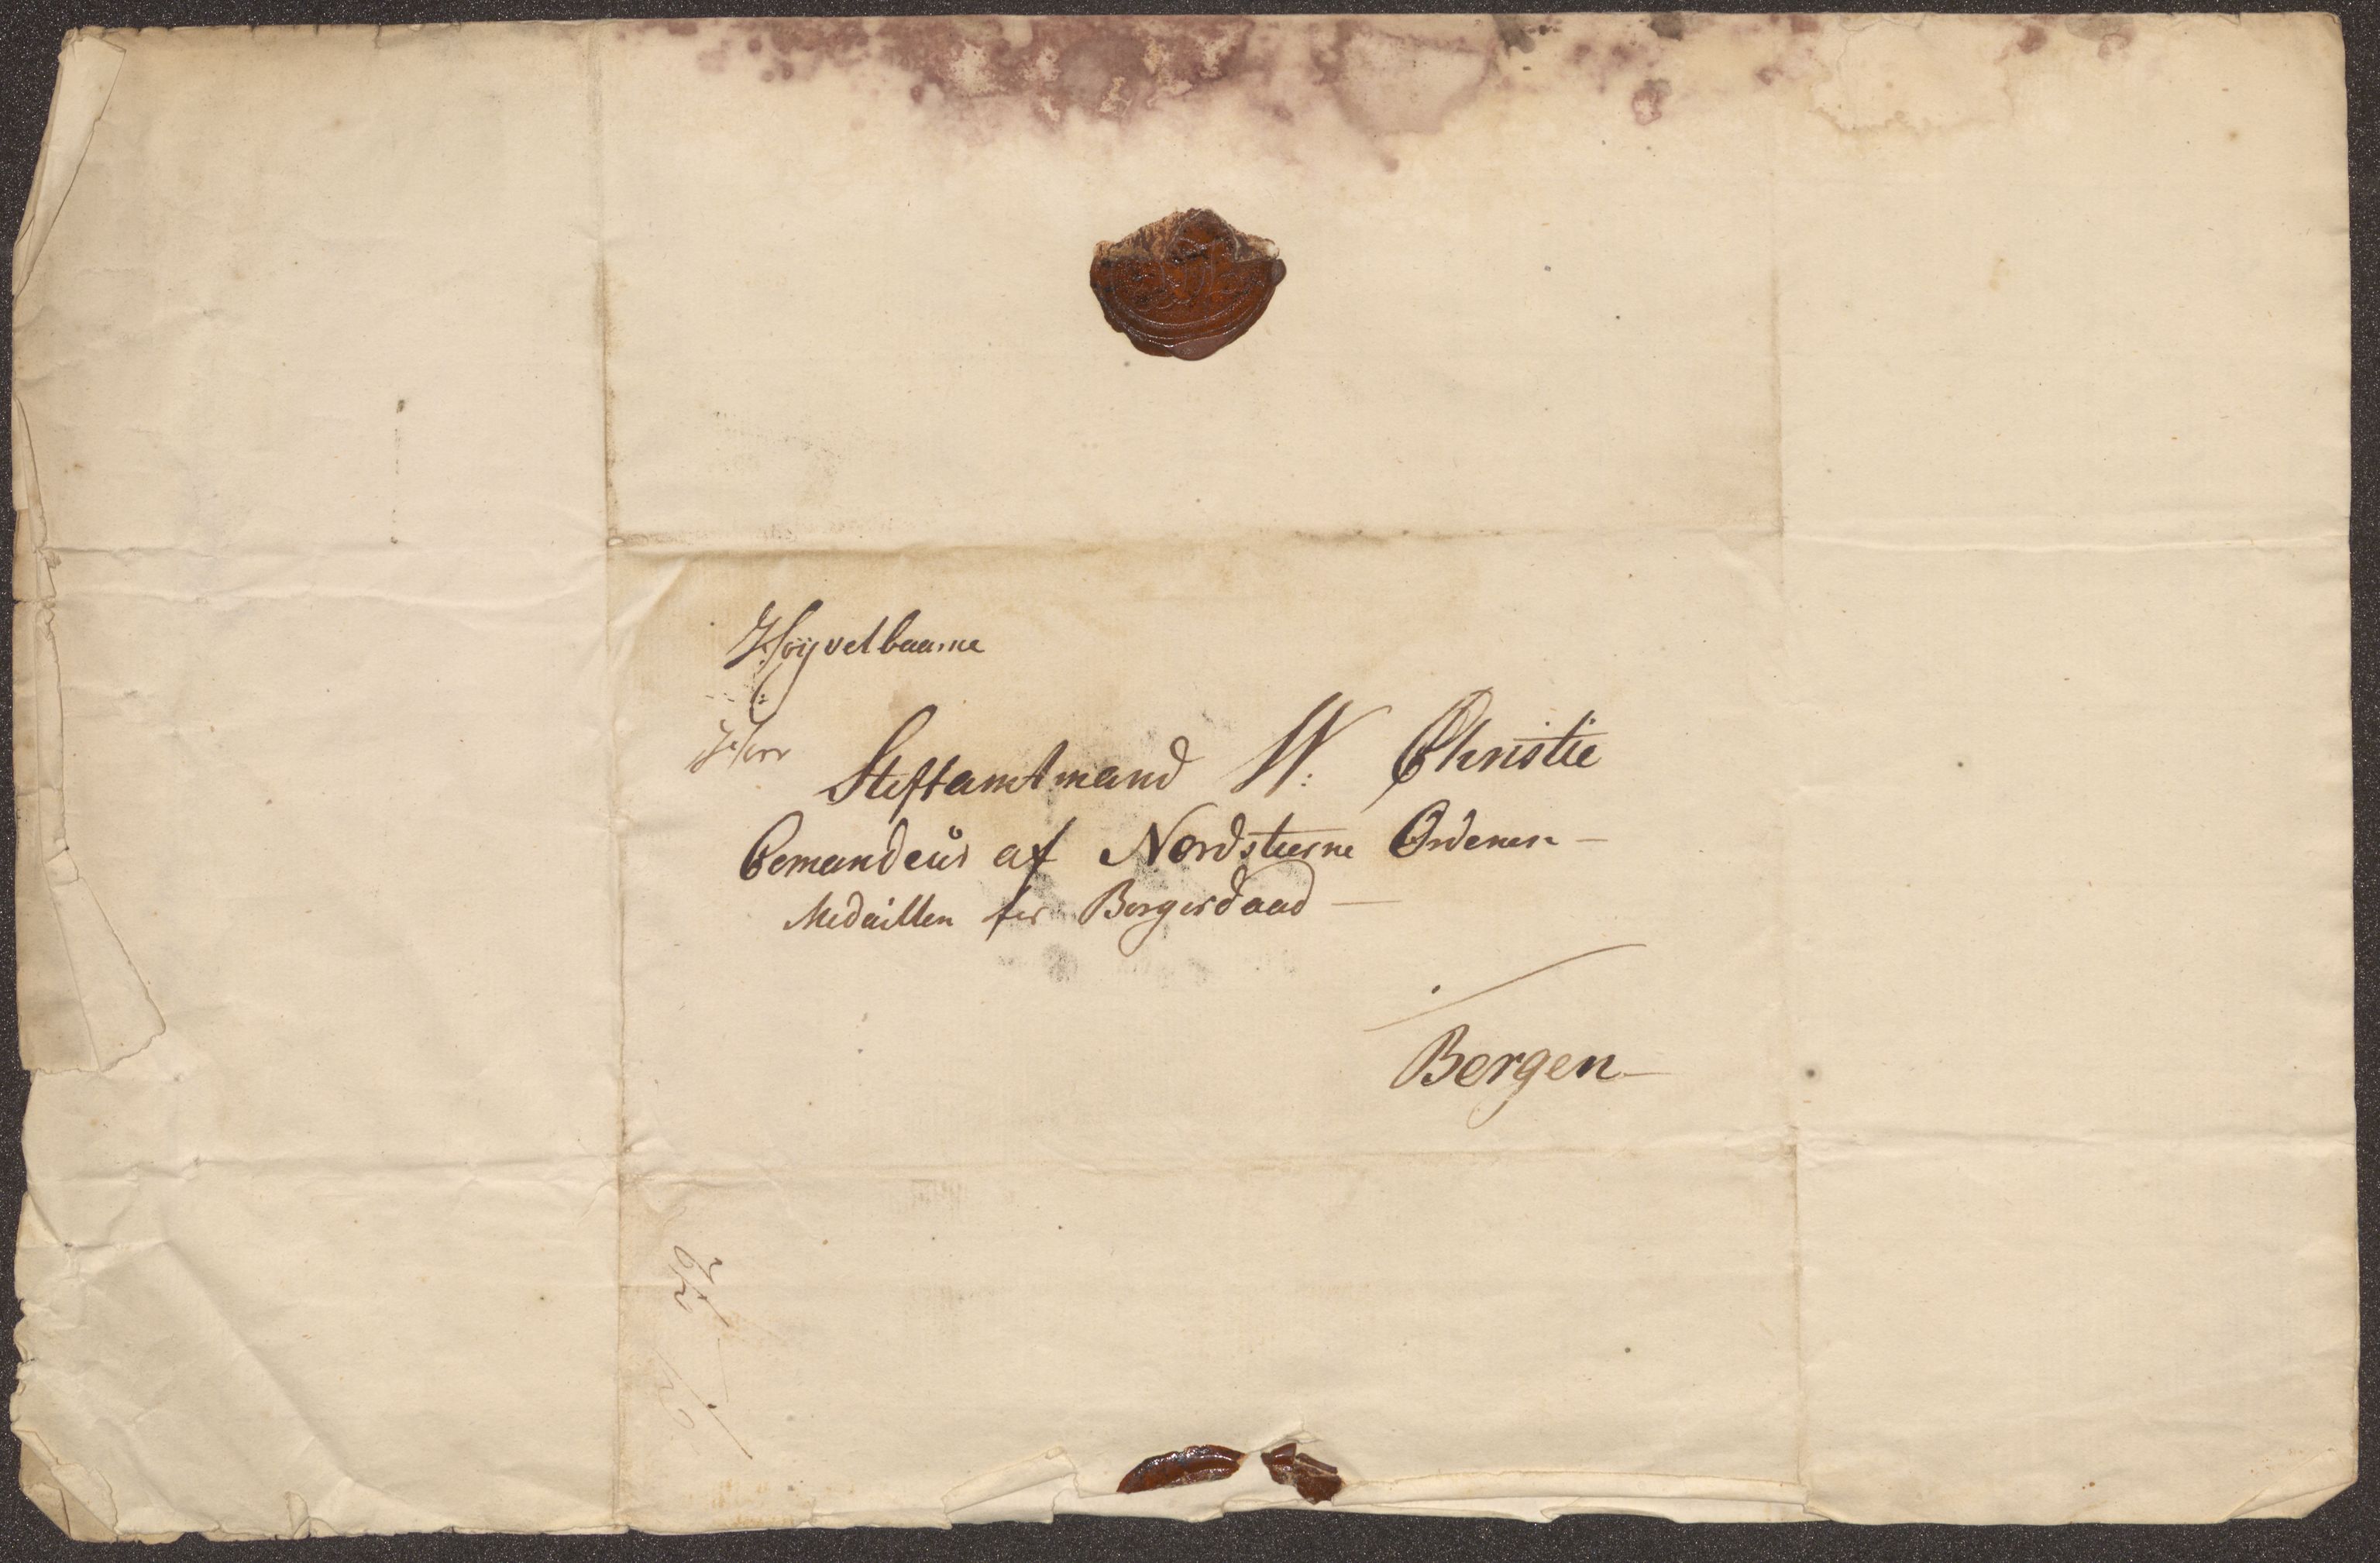 Høyvelbaarne
Herr
Stiftamtmand W: Christie
Comandeur af Nordstierne Ordenen —
Medaillen for Borgerdaad —
Bergen —